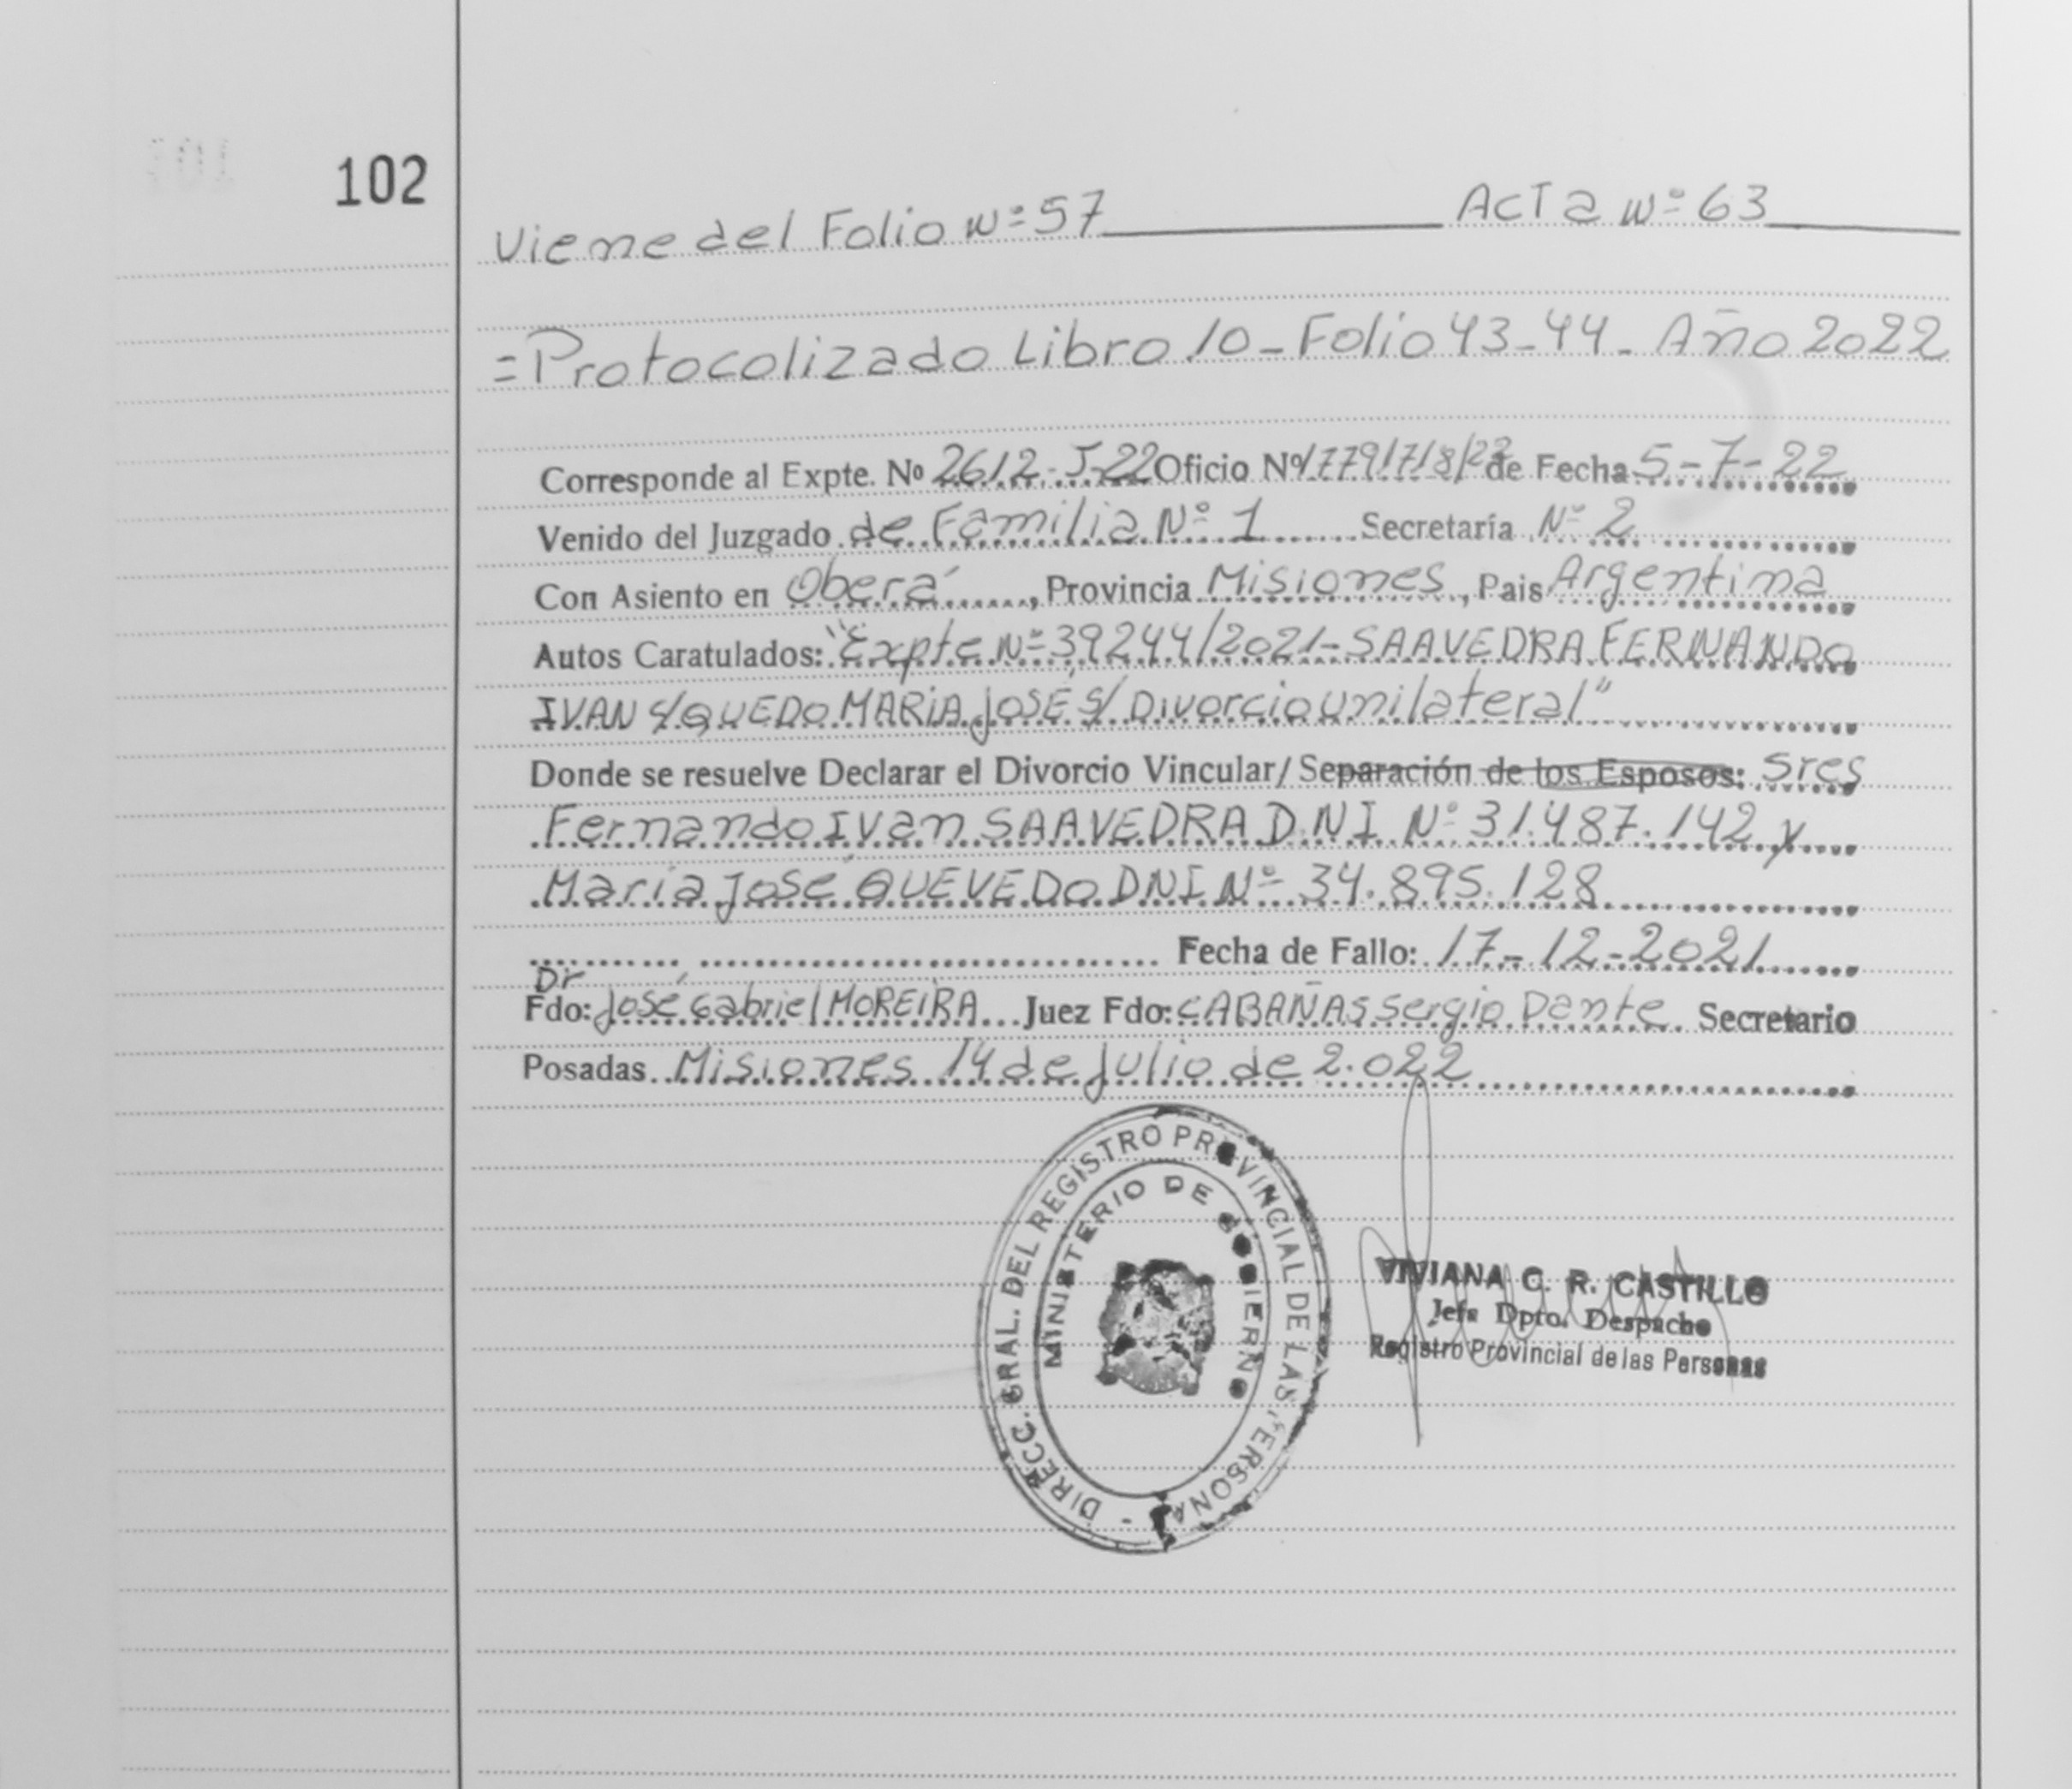 102
Viene del Folio Nº 57 Acta Nº 63
=Protocolizado Libro 10_Folio 43_44_ Año 2022
Corresponde al Expte. Nº 2612-J-22 Oficio Nº 1779/7/8/22 de Fecha 5-7-22
Venido del Juzgado de Familia Nº 1 Secretaría Nº 2
Con Asiento en Oberá, Provincia Misiones, Pais Argentina
Autos Caratulados: "Expte Nº 39244/2021-SAAVEDRA FERNANDO
IVAN c/QUEDO MARIA JOSÉ S/ Divorcio unilateral"
Donde se resuelve Declarar el Divorcio Vincular/ Separación de los Esposos: Sres
Fernando Ivan SAAVEDRA D.N.I Nº 31.487.142 y
María José QUEVEDO DNI Nº 34.895.128
Fecha de Fallo: 17-12-2021
Dr
Fdo: José Gabriel MOREIRA Juez Fdo: CABAÑAS Sergio Dante Secretario
Posadas Misiones 14 de Julio de 2.022
DIRECC. GRAL. DEL REGISTRO PROVINCIAL DE LAS PERSONAS -
MINISTERIO DE GOBIERNO
VIVIANA C. R. CASTILLO
Jefa Dpto. Despacho
Registro Provincial de las Personas